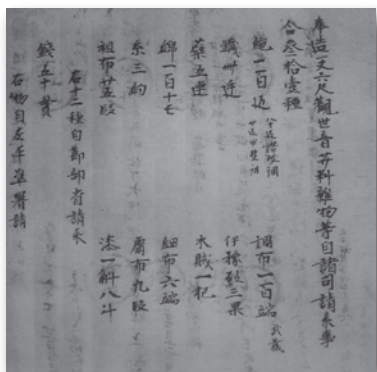 奉造丈六尺觀世音菩料雜物等自諸司請来事
合叁拾壹種
絁一百疋 調布一百端 武蔵
鐵卅廷 伊豫砥三果
藁五連 木賊一杞
綿一百十屯 細布六端
糸三約 商布九段
祖布廿五段 漆一斛八斗
右十二種自節部省請来
錢五十貫
右物自左平準署請